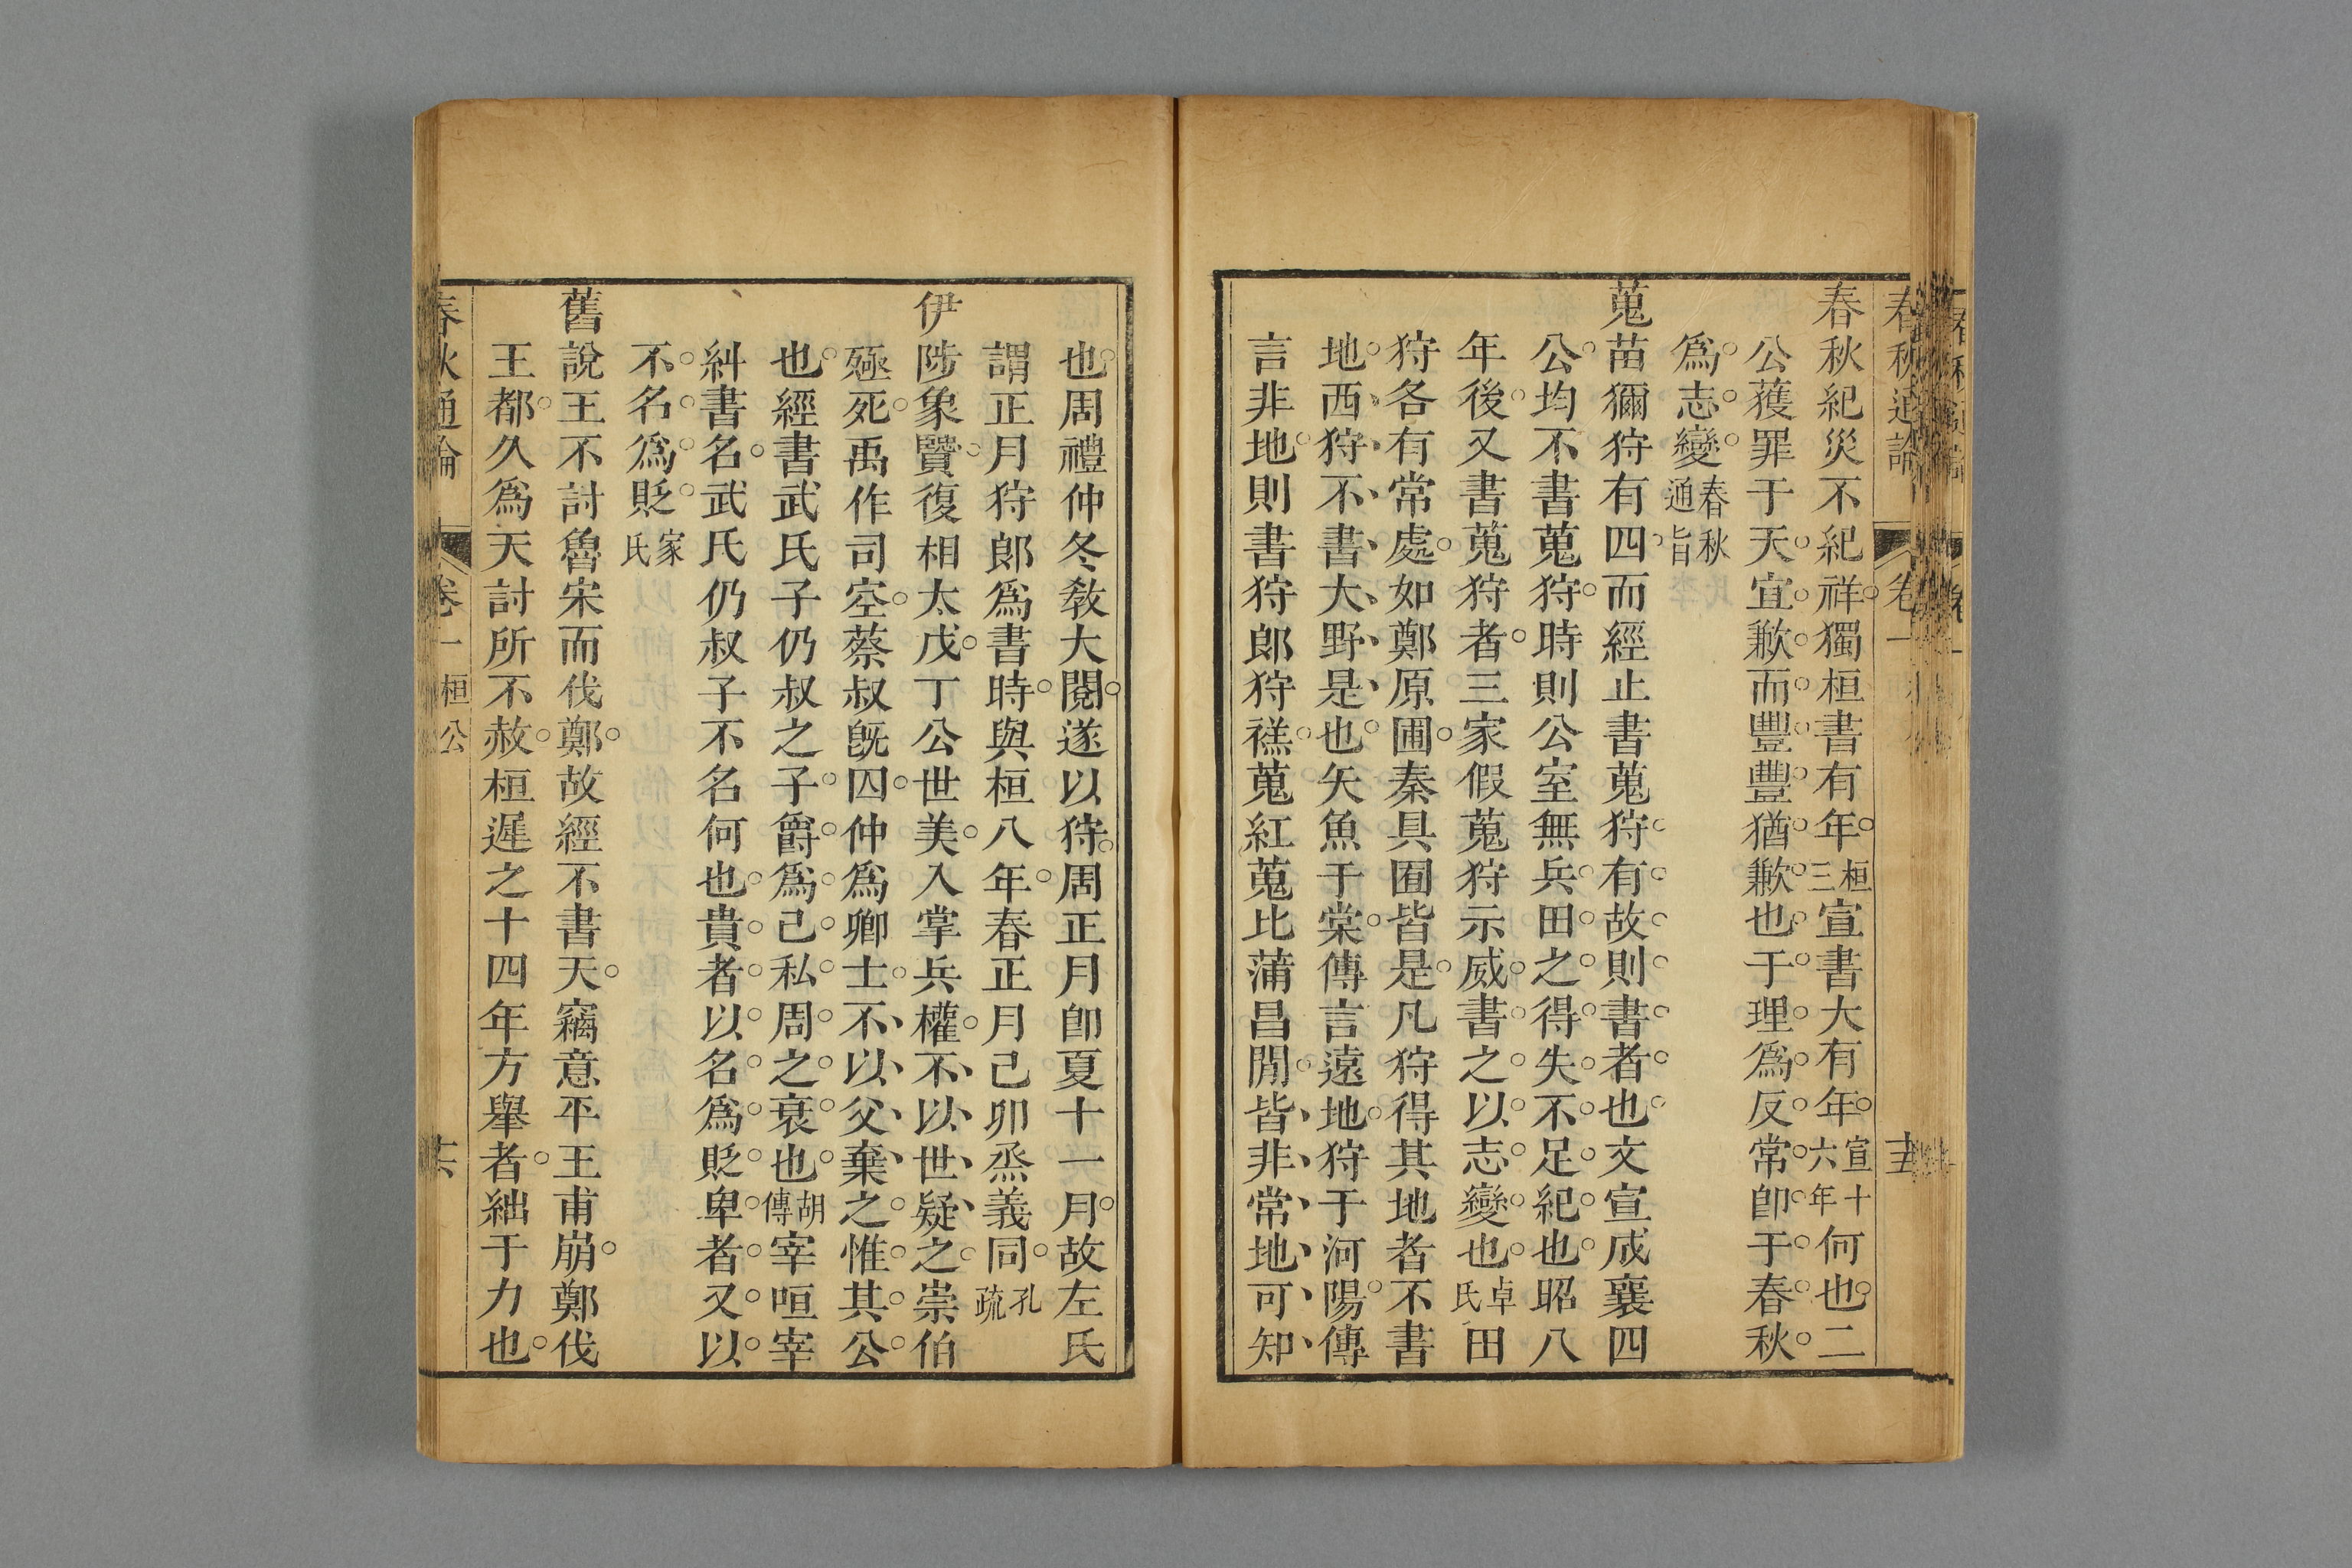 春秋通論 卷一
春秋紀災不紀祥獨桓書有年桓三宣書大有年宣十六年何也二
公獲罪于天宜歉而豐豐猶歉也于理爲反常卽于春秋
爲志變春秋通旨
蒐苗獮狩有四而經止書蒐狩有故則書者也文宣成襄四
公均不書蒐狩時則公室無兵田之得失不足紀也昭八
年後又書蒐狩者三家假蒐狩示威書之以志變也卓氏田
狩各有常處如鄭原圃秦具囿皆是凡狩得其地者不書
地西狩不書大野是也矢魚于棠傳言遠地狩于河陽傳
言非地則書狩郎狩禚蒐紅蒐比蒲昌閒皆非常地可知
也周禮仲冬敎大閱遂以狩周正月卽夏十一月故左氏
謂正月狩郎爲書時與桓八年春正月己卯烝義同孔疏
伊陟象賢復相太戊丁公世美入掌兵權不以世疑之崇伯
殛死禹作司空蔡叔旣囚仲爲卿士不以父棄之惟其公
也經書武氏子仍叔之子爵爲己私周之衰也胡傳宰咺宰
糾書名武氏仍叔子不名何也貴者以名爲貶卑者又以
不名爲貶家氏
舊說王不討魯宋而伐鄭故經不書天竊意平王甫崩鄭伐
王都久爲天討所不赦桓遲之十四年方舉者絀于力也
春秋通論 卷一 桓公 十六